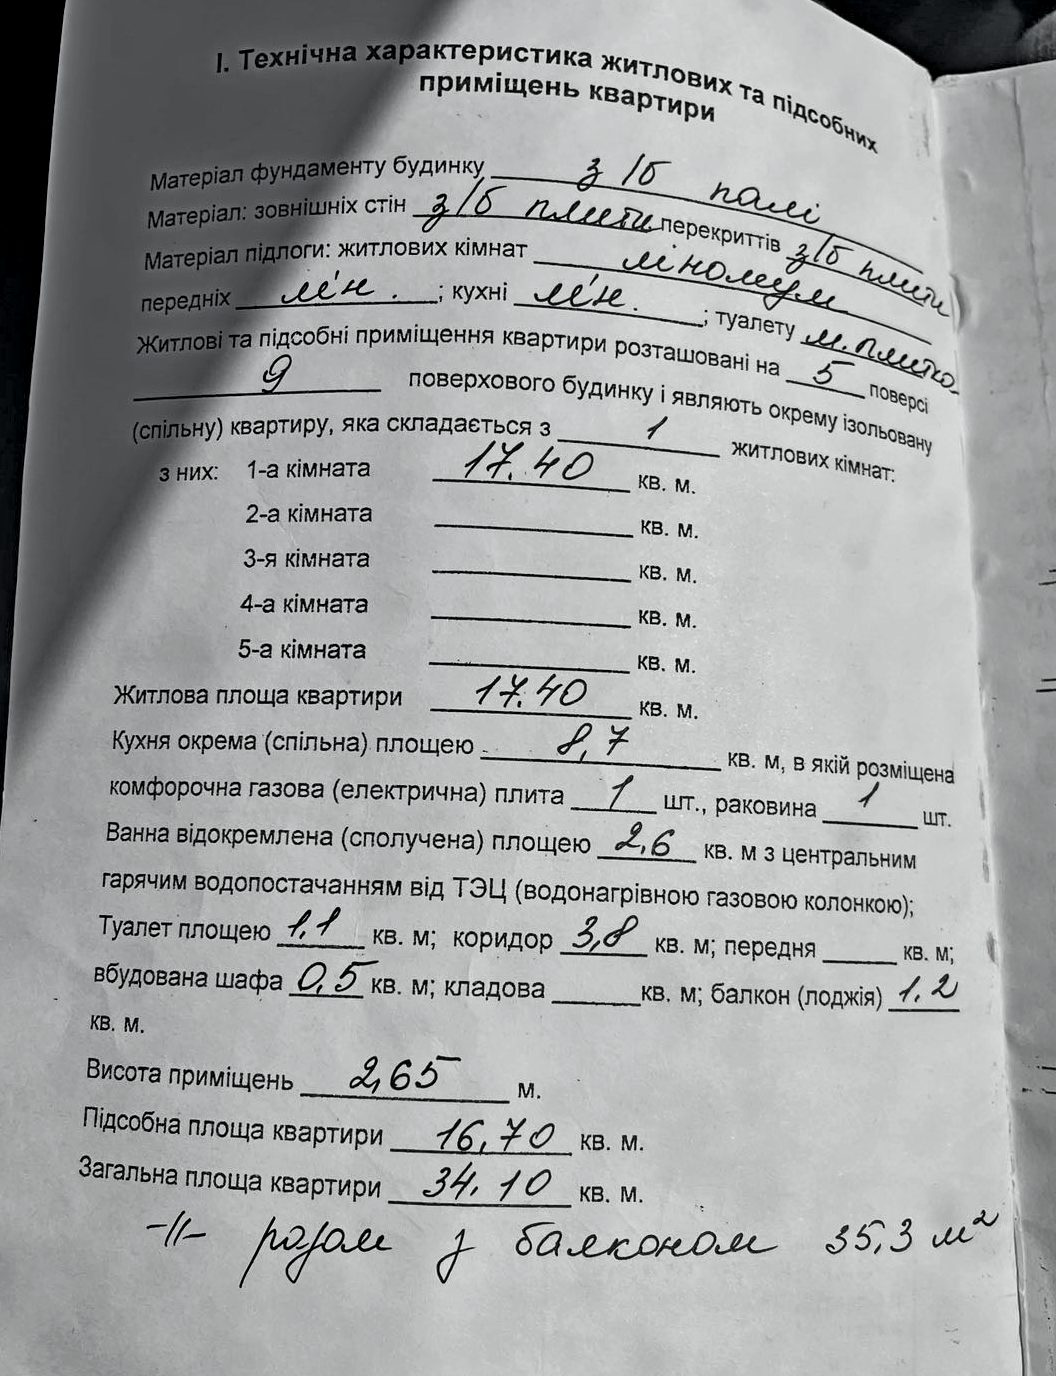 І. Технічна характеристика житлових та підсобних
приміщень квартири
Матеріал фундаменту будинку з/б палі
Матеріал: зовнішніх стін з/б плити перекриттів з/б плити
Матеріал підлоги: житлових кімнат лінолеум
передніх лін. ; кухні лін. ; туалету м.плитка
Житлові та підсобні приміщення квартири розташовані на 5 поверсі
9 поверхового будинку і являють окрему ізольовану
(спільну) квартиру, яка складається з 1 житлових кімнат:
з них: 1-а кімната 17.40 кв. м.
2-а кімната кв. м.
3-я кімната кв. м.
4-а кімната кв. м.
5-а кімната кв. м.
Житлова площа квартири 17.40 кв. м.
Кухня окрема (спільна) площею 8,7 кв. м, в якій розміщена
комфорочна газова (електрична) плита 1 шт., раковина 1 шт.
Ванна відокремлена (сполучена) площею 2,6 кв. м з центральним
гарячим водопостачанням від ТЭЦ (водонагрівною газовою колонкою);
Туалет площею 1,1 кв. м; коридор 3,8 кв. м; передня кв. м;
вбудована шафа 0,5 кв. м; кладова кв. м; балкон (лоджія) 1.2
кв. м.
Висота приміщень 2,65 м.
Підсобна площа квартири 16,70 кв. м.
Загальна площа квартири 34.10 кв. м.
-//- разом з балконом 35,3 м²